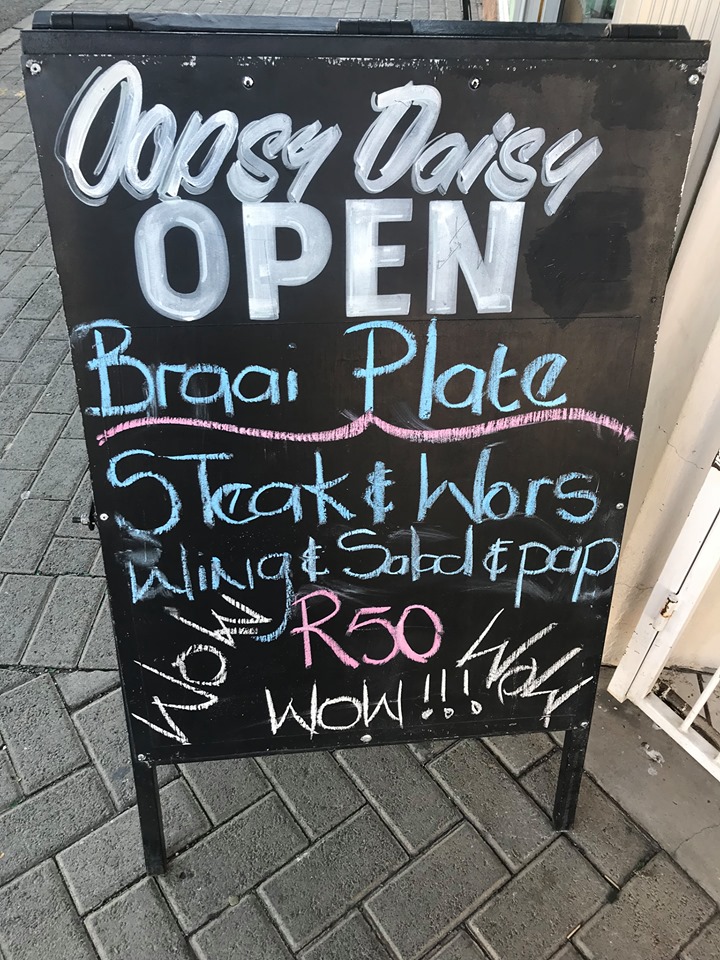 Oopsy Daisy
OPEN
Braai Plate
Steak & Wors
Wing & Salad & pap
R50
WOW
WOW !!!
WOW